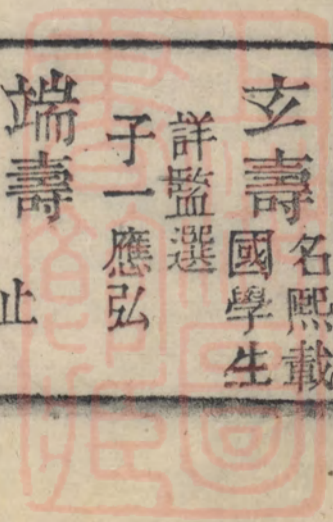 玄壽
名熙載
國學生
詳監選
子一應弘
端壽
止